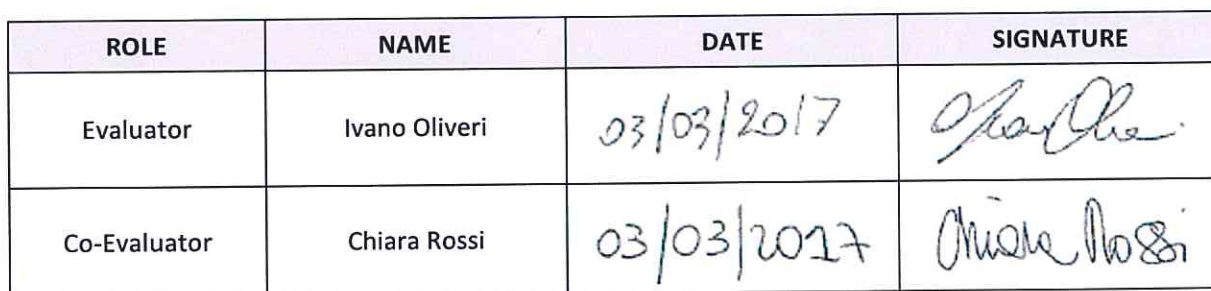 ROLE NAME DATE SIGNATURE
Evaluator Ivano Oliveri 03/03/2017
Co-Evaluator Chiara Rossi 03/03/2017 Chiara Rossi